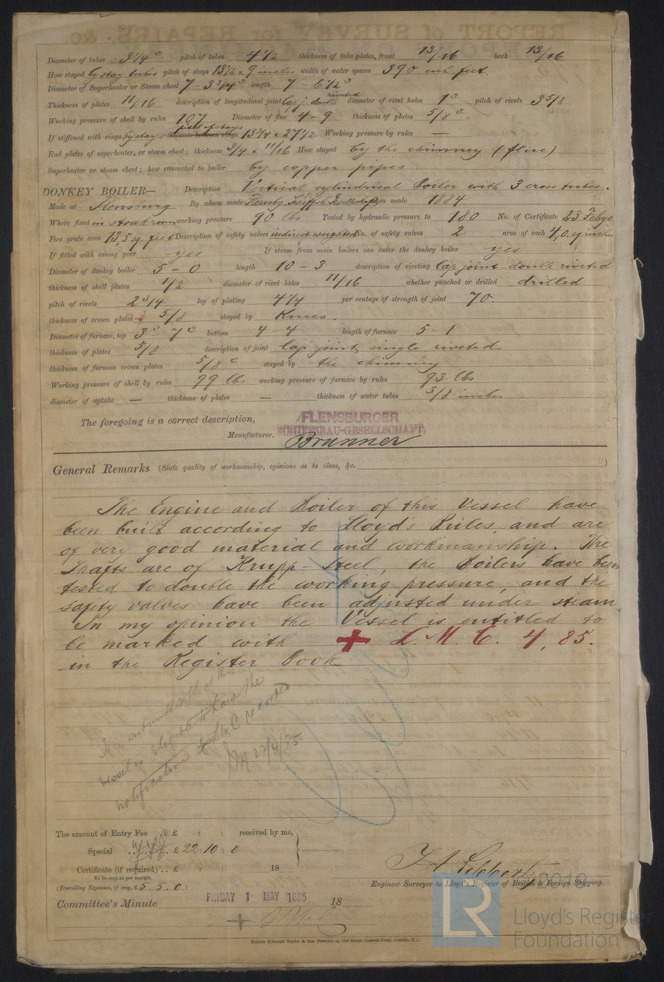 REPORT of SURVEY for REPAIRS, &c.
Diameter of tubes 3 1/4" pitch of tubes 4 1/2 thickness of tube plates, front 13/16 back 13/16
How stayed by stay tubes pitch of stays 13 1/2 x 9 inches width of water spaces 390 cub feet
Diameter of Superheater or Steam chest 7 - 3 3/4" length 7 - 6 1/2"
Thickness of plates 11/16 description of longitudinal joint lap double riveted diameter of rivet holes 1" pitch of rivets 3 5/8
Working pressure of shell by rules 107 Diameter of flue 4 - 9 thickness of plates 5/8"
If stiffened with rings by stays pitch of stays 13 3/4 x 27 1/2 Working pressure by rules —
End plates of superheater, or steam chest; thickness 3/4 x 11/16 How stayed by the chimney (flue)
Superheater or steam chest; how connected to boiler by copper pipes
DONKEY BOILER— Description Vertical cylindrical Boiler with 3 cross tubes.
Made at Flensburg By whom made when made 1884
Where fixed in stoad room working pressure 90 lbs Tested by hydraulic pressure to 180 No. of Certificate 23
Fire grate area 13.5 sq feet Description of safety valves No. of safety valves 2 area of each
If fitted with easing gear yes If steam from main boilers can enter the donkey boiler yes
Diameter of donkey boiler 5 - 0 length 10 - 3 description of riveting lap joint double riveted
thickness of shell plates 1/2 diameter of rivet holes 11/16 whether punched or drilled drilled
pitch of rivets 2 3/4 lap of plating 4 1/4 per centage of strength of joint 70.
thickness of crown plates 5/8 stayed by Knees.
Diameter of furnace, top 3" - 7" bottom 4 - 4 length of furnace 5 - 1
thickness of plates 5/8 description of joint lap joint single riveted
thickness of furnace crown plates 5/8" stayed by the chimney
Working pressure of shell by rules 99 lbs working pressure of furnace by rules 93 lbs
diameter of uptake — thickness of plates — thickness of water tubes 3/8 inches
The foregoing is a correct description,
FLENSBURGER
SCHIFFSBAU-GESELLSCHAFT
Manufacturer. Brunner
General Remarks (State quality of workmanship, opinions as to class, &c.
The Engine and Boiler of this Vessel have
been built according to Lloyd's Rules, and are
of very good material and workmanship. The
Shafts are of Krupp-Steel, the Boilers have been
tested to double the working pressure, and the
safety valves have been adjusted under steam.
In my opinion the Vessel is entitled to
be marked with + L.M.C. 4,85.
in the Register Book
It is submitted that this
vessel is eligible to have the
notification of LMC recorded
22/4/85
The amount of Entry Fee .. £ : : received by me,
Special .. £ 22 : 10 : 0
Certificate (if required) .. £ : : 18
To be sent as per margin.
(Travelling Expenses, if any, £ 5. 5. 0)
Engineer Surveyor to Lloyd's Register of British & Foreign Shipping.
Committee's Minute FRIDAY 1 MAY 1885 18
© 2019
LR
Lloyd's Register
Foundation